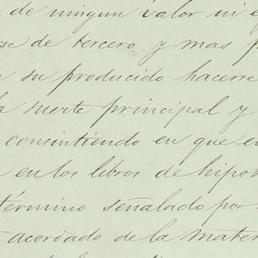 de ningun valor ni e
se de tercero y mas p
su producido hacerse
la suerte principal y
consintiendo en que e
en los libros de hipo
término señalado por
acordado de la mater